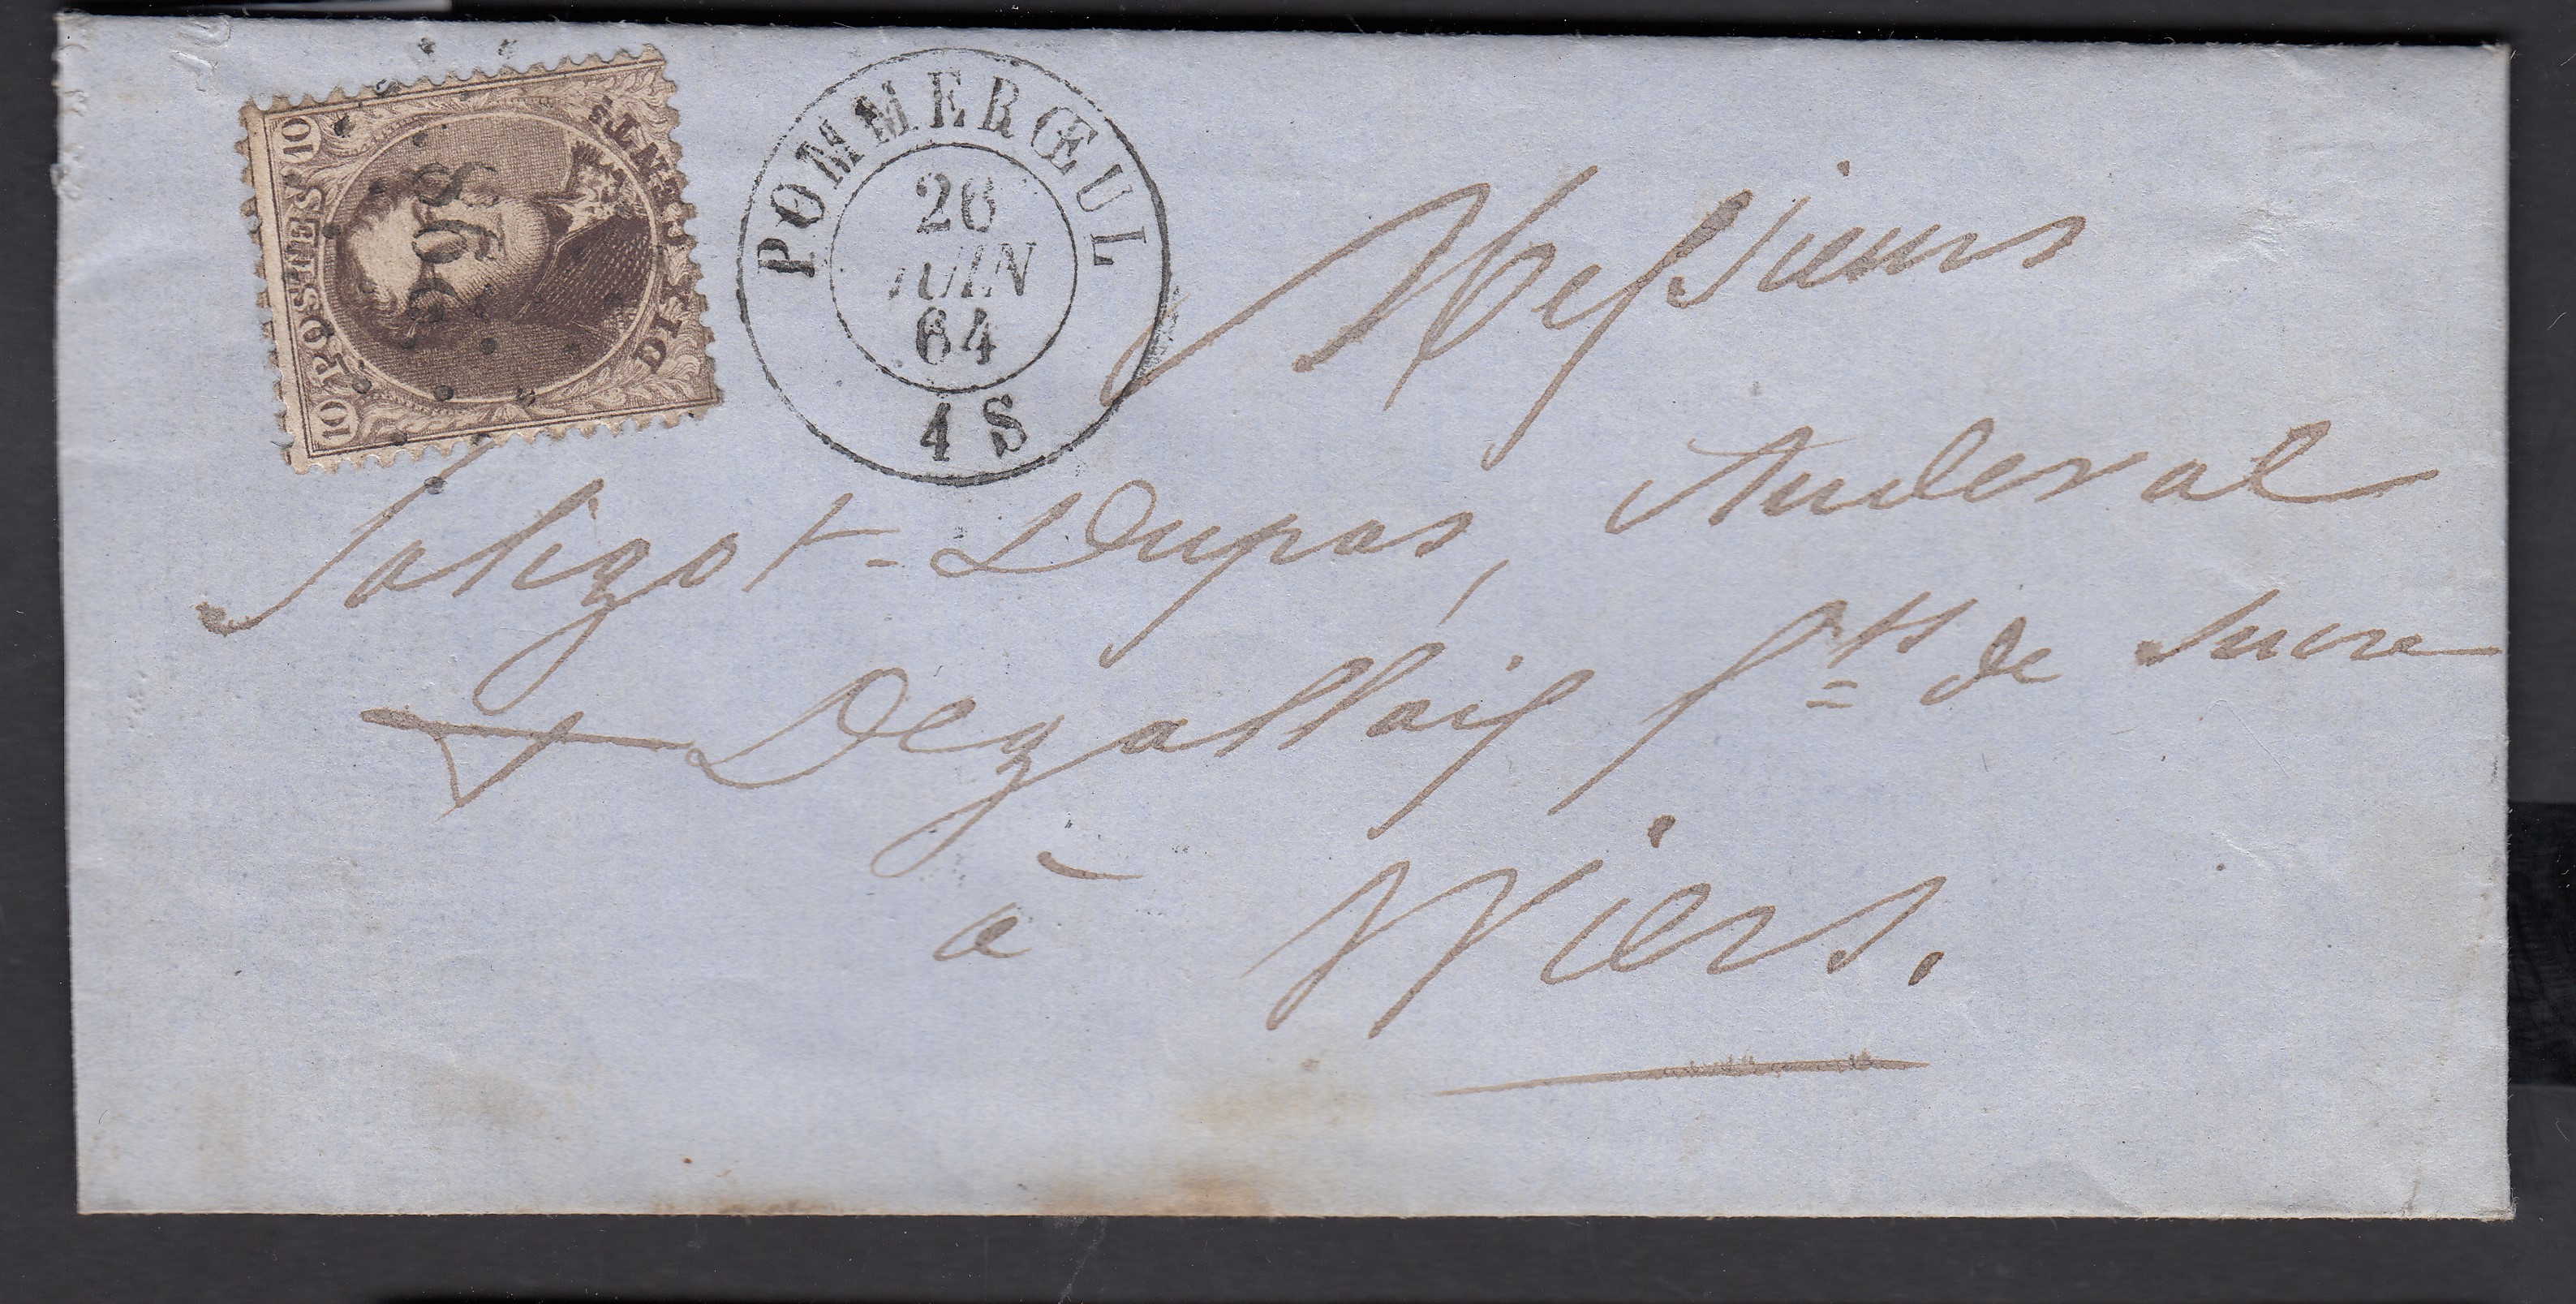 10 POSTES 10
DIX CENTIMES
298
POMMERŒUL
26
JUIN
64
4 S
Messieurs
Salizot-Dupas, Auderval
& Dezalloix fts de Sucre
à Wiers.